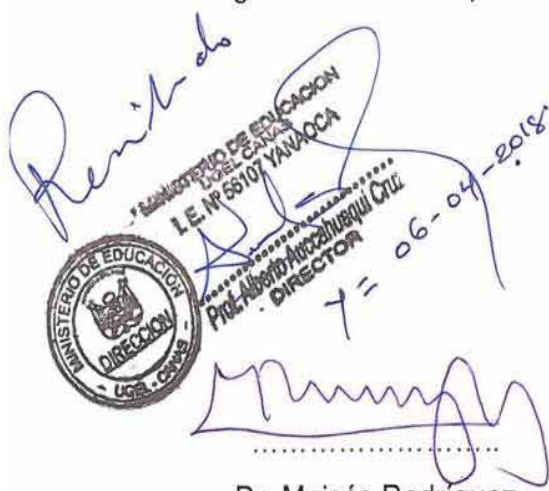 Recibido
MINISTERIO DE EDUCACION
UGEL CANAS
I. E. Nº 56107 YANAOCA
Prof. Alberto Auccahuaqui Cruz
DIRECTOR
06-04-2018
MINISTERIO DE EDUCACION
DIRECCION
- UGEL - CANAS -
Dr. Moisés Rodríguez